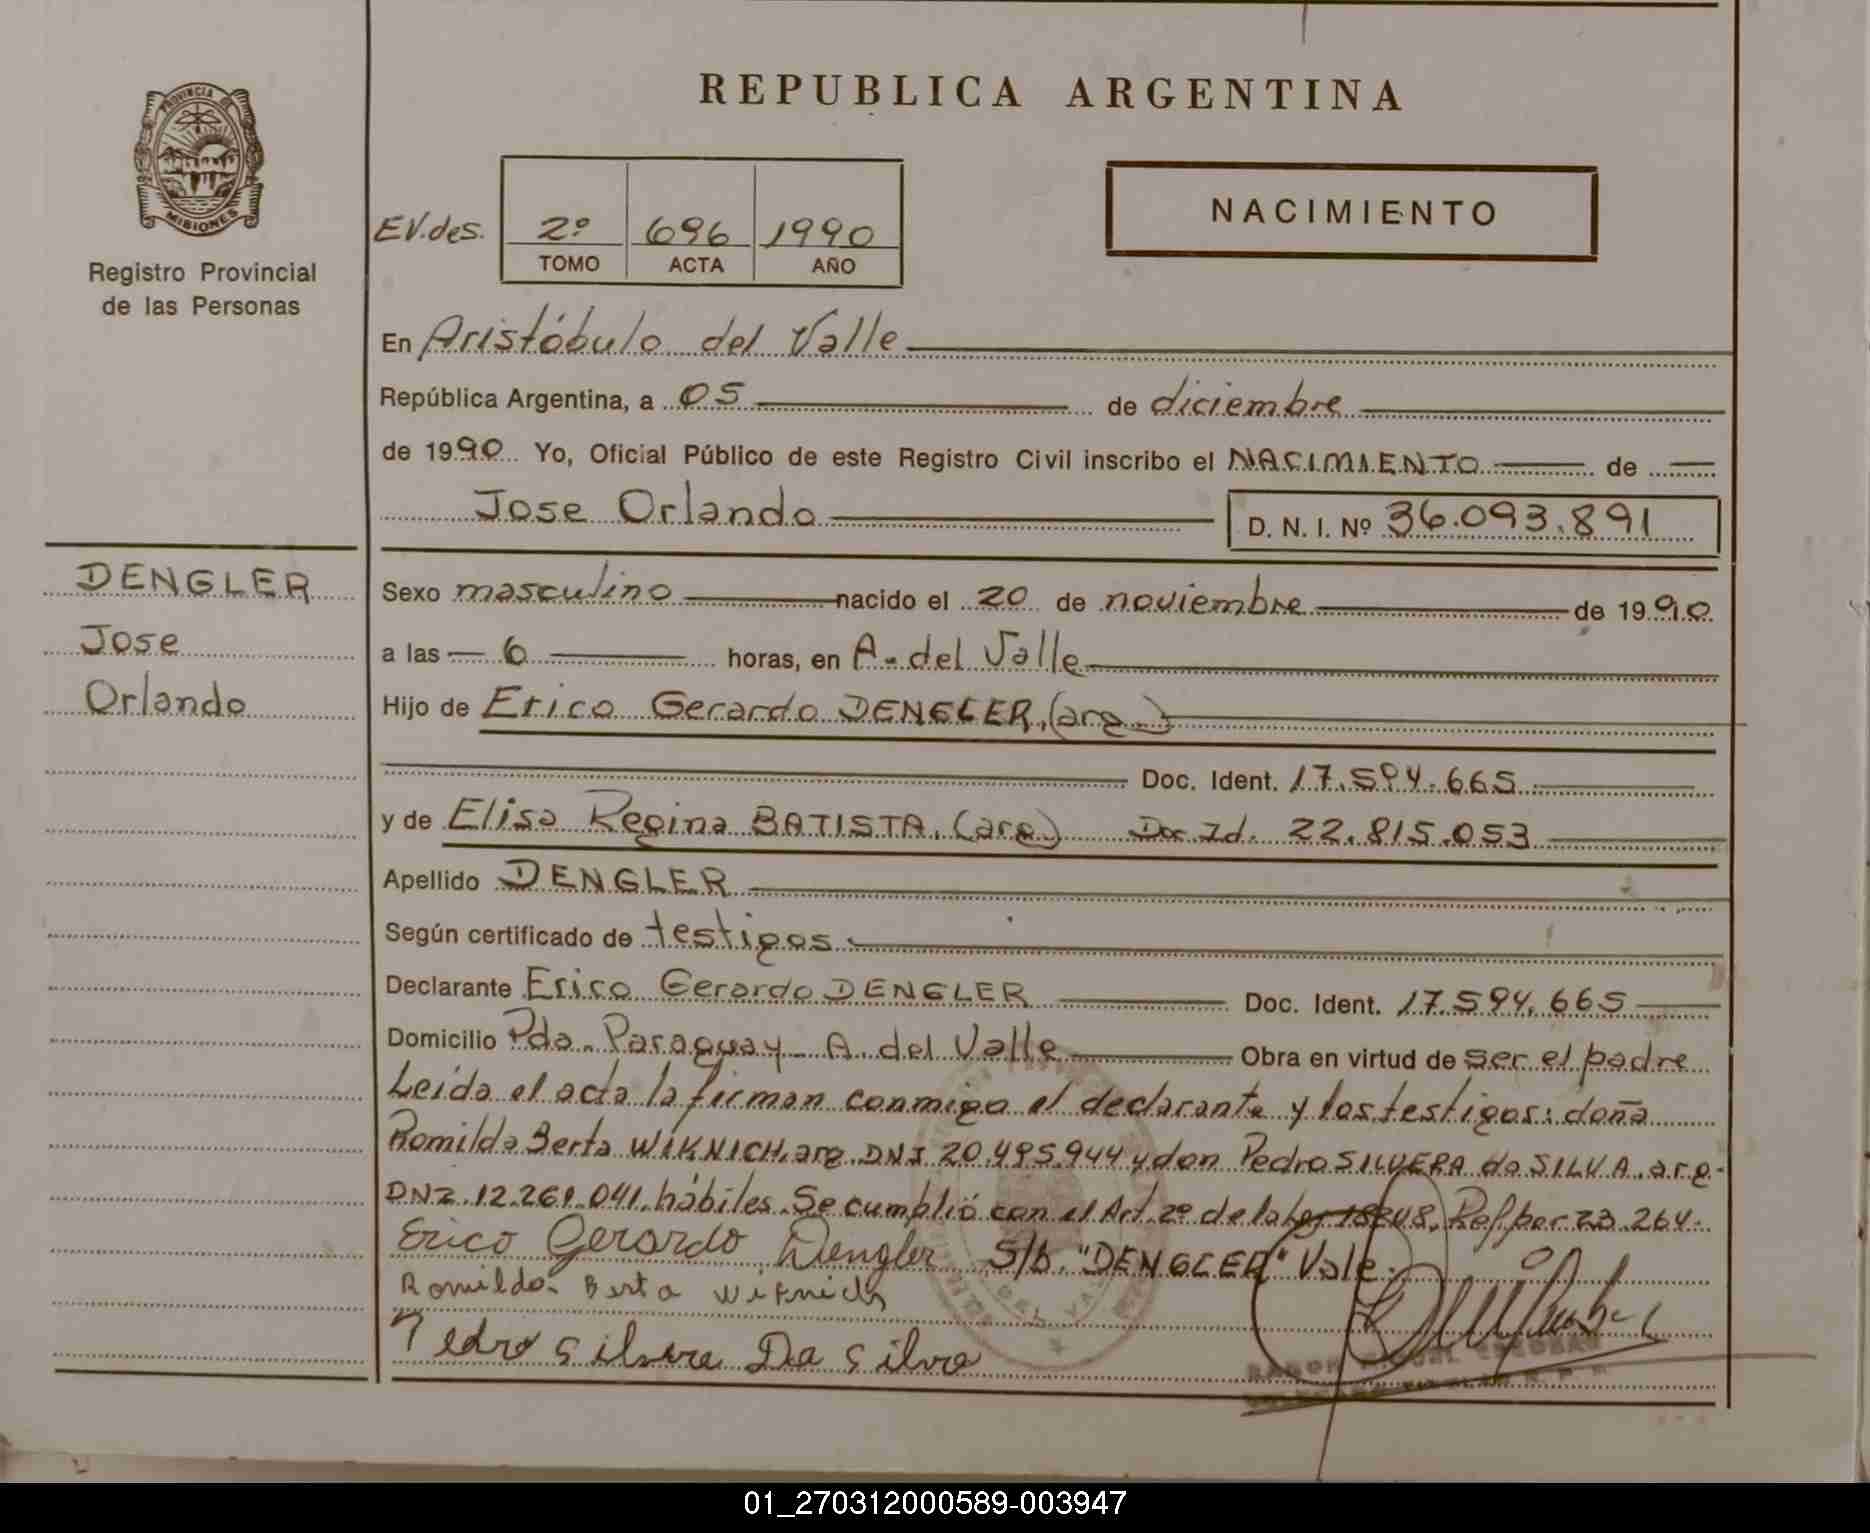 REPUBLICA ARGENTINA
PROVINCIA DE
MISIONES
Registro Provincial
de las Personas
NACIMIENTO
EV.des. 2º 696 1990
TOMO ACTA AÑO
En Aristóbulo del Valle
República Argentina, a 05 de diciembre
de 1990 Yo, Oficial Público de este Registro Civil inscribo el NACIMIENTO de
Jose Orlando D. N. I. Nº 36.093.891
DENGLER
Jose
Orlando
Sexo masculino nacido el 20 de noviembre de 1990
a las 6 horas, en A. del Valle
Hijo de Erico Gerardo DENGLER (arg.)
Doc. Ident. 17.594.665
y de Elisa Regina BATISTA (arg.) Doc Id. 22.815.053
Apellido DENGLER
Según certificado de testigos
Declarante Erico Gerardo DENGLER Doc. Ident. 17.594.665
Domicilio Pda. Paraguay A. del Valle Obra en virtud de ser el padre
Leída el acta la firman conmigo el declarante y los testigos: doña
Romilda Berta WIKNICH, arg. DNI 20.495.944 y don Pedro SILVERA da SILVA. arg.
DNI. 12.261.041. hábiles. Se cumplió con el Art. 2º de la Ley 18248. Ref por 23.264.
Erico Gerardo Dengler S/b. "DENGLER" Vale.
Romilda Berta Wiknich
Pedro Silvera Da Silva
RAMON MIGUEL ESCOBAR
01_270312000589-003947